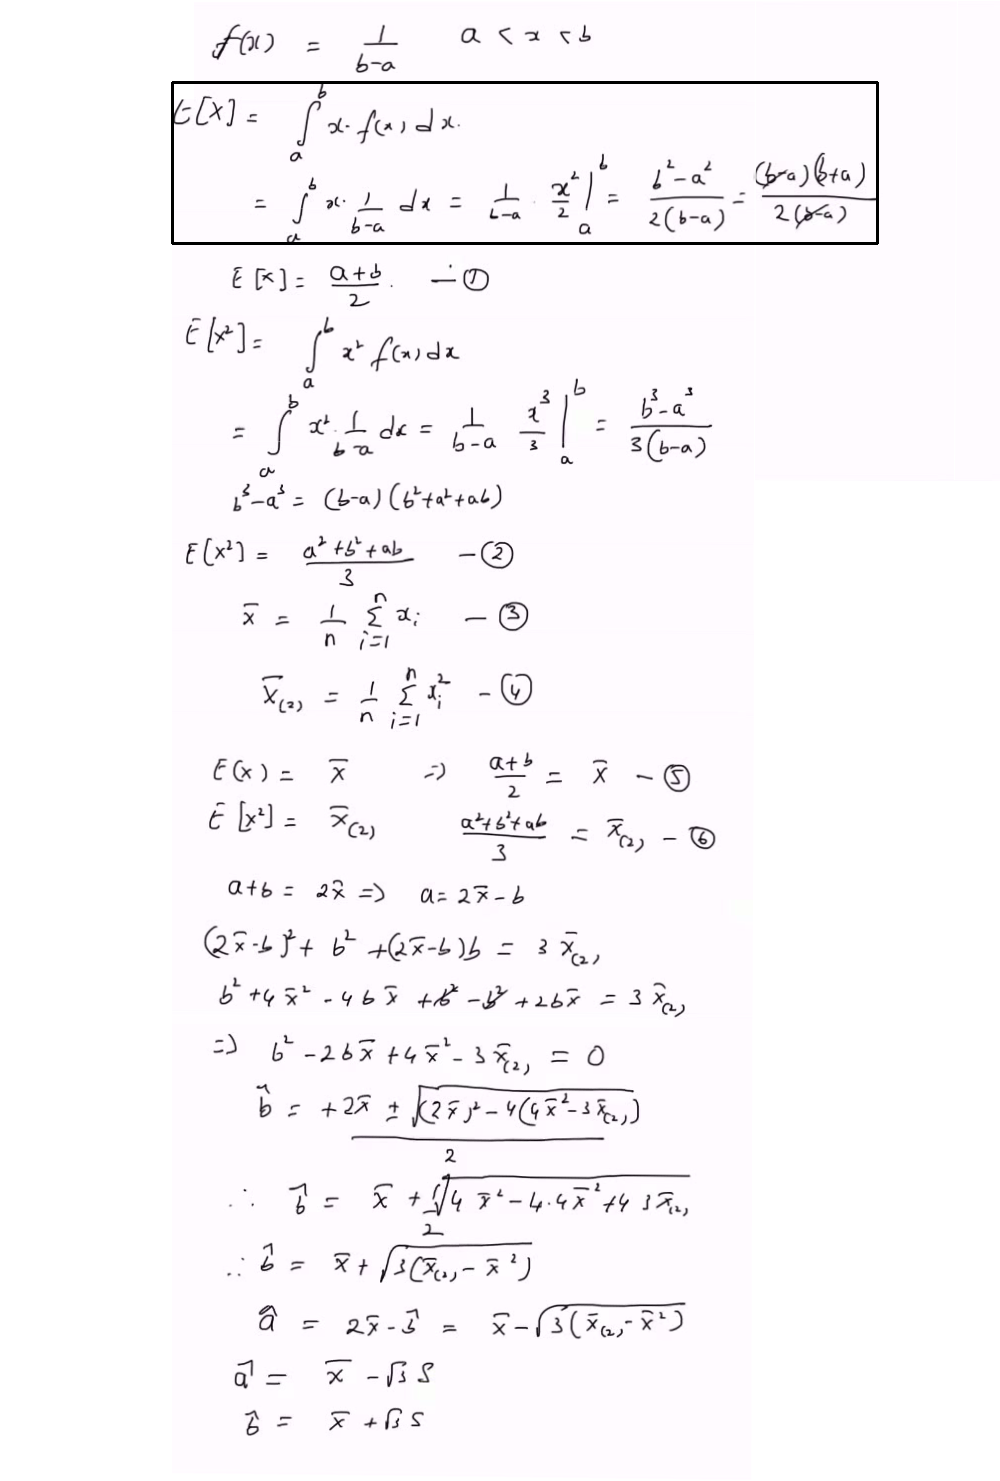 f(x) = 1/(b-a)  a < x < b
E[X] = ∫_a^b x·f(x) dx.
= ∫_a^b x·1/(b-a) dx = 1/(b-a) · x²/2 |_a^b = (b²-a²)/(2(b-a)) = ((b-a)(b+a))/(2(b-a))
E[x] = (a+b)/2. — ①
E[x²] = ∫_a^b x² f(x) dx
= ∫_a^b x²·1/(b-a) dx = 1/(b-a) x³/3 |_a^b = (b³-a³)/(3(b-a))
b³-a³ = (b-a)(b²+a²+ab)
E[x²] = (a²+b²+ab)/3 — ②
x̄ = 1/n Σ_{i=1}^n x_i — ③
x̄_(2) = 1/n Σ_{i=1}^n x_i² — ④
E(x) = x̄ => (a+b)/2 = x̄ — ⑤
E[x²] = x̄_(2)  (a²+b²+ab)/3 = x̄_(2) — ⑥
a+b = 2x̄ => a = 2x̄-b
(2x̄-b)² + b² + (2x̄-b)b = 3 x̄_(2)
b² + 4x̄² - 4bx̄ + b² - b² + 2bx̄ = 3 x̄_(2)
=> b² - 2bx̄ + 4x̄² - 3x̄_(2) = 0
b̂ = (+2x̄ ± √((2x̄)² - 4(4x̄² - 3x̄_(2))))/2
∴ b̂ = x̄ + √(4x̄² - 4·4x̄² + 4 3x̄_(2))/2
∴ b̂ = x̄ + √(3(x̄_(2) - x̄²))
â = 2x̄ - b̂ = x̄ - √(3(x̄_(2) - x̄²))
â = x̄ - √3 S
b̂ = x̄ + √3 S